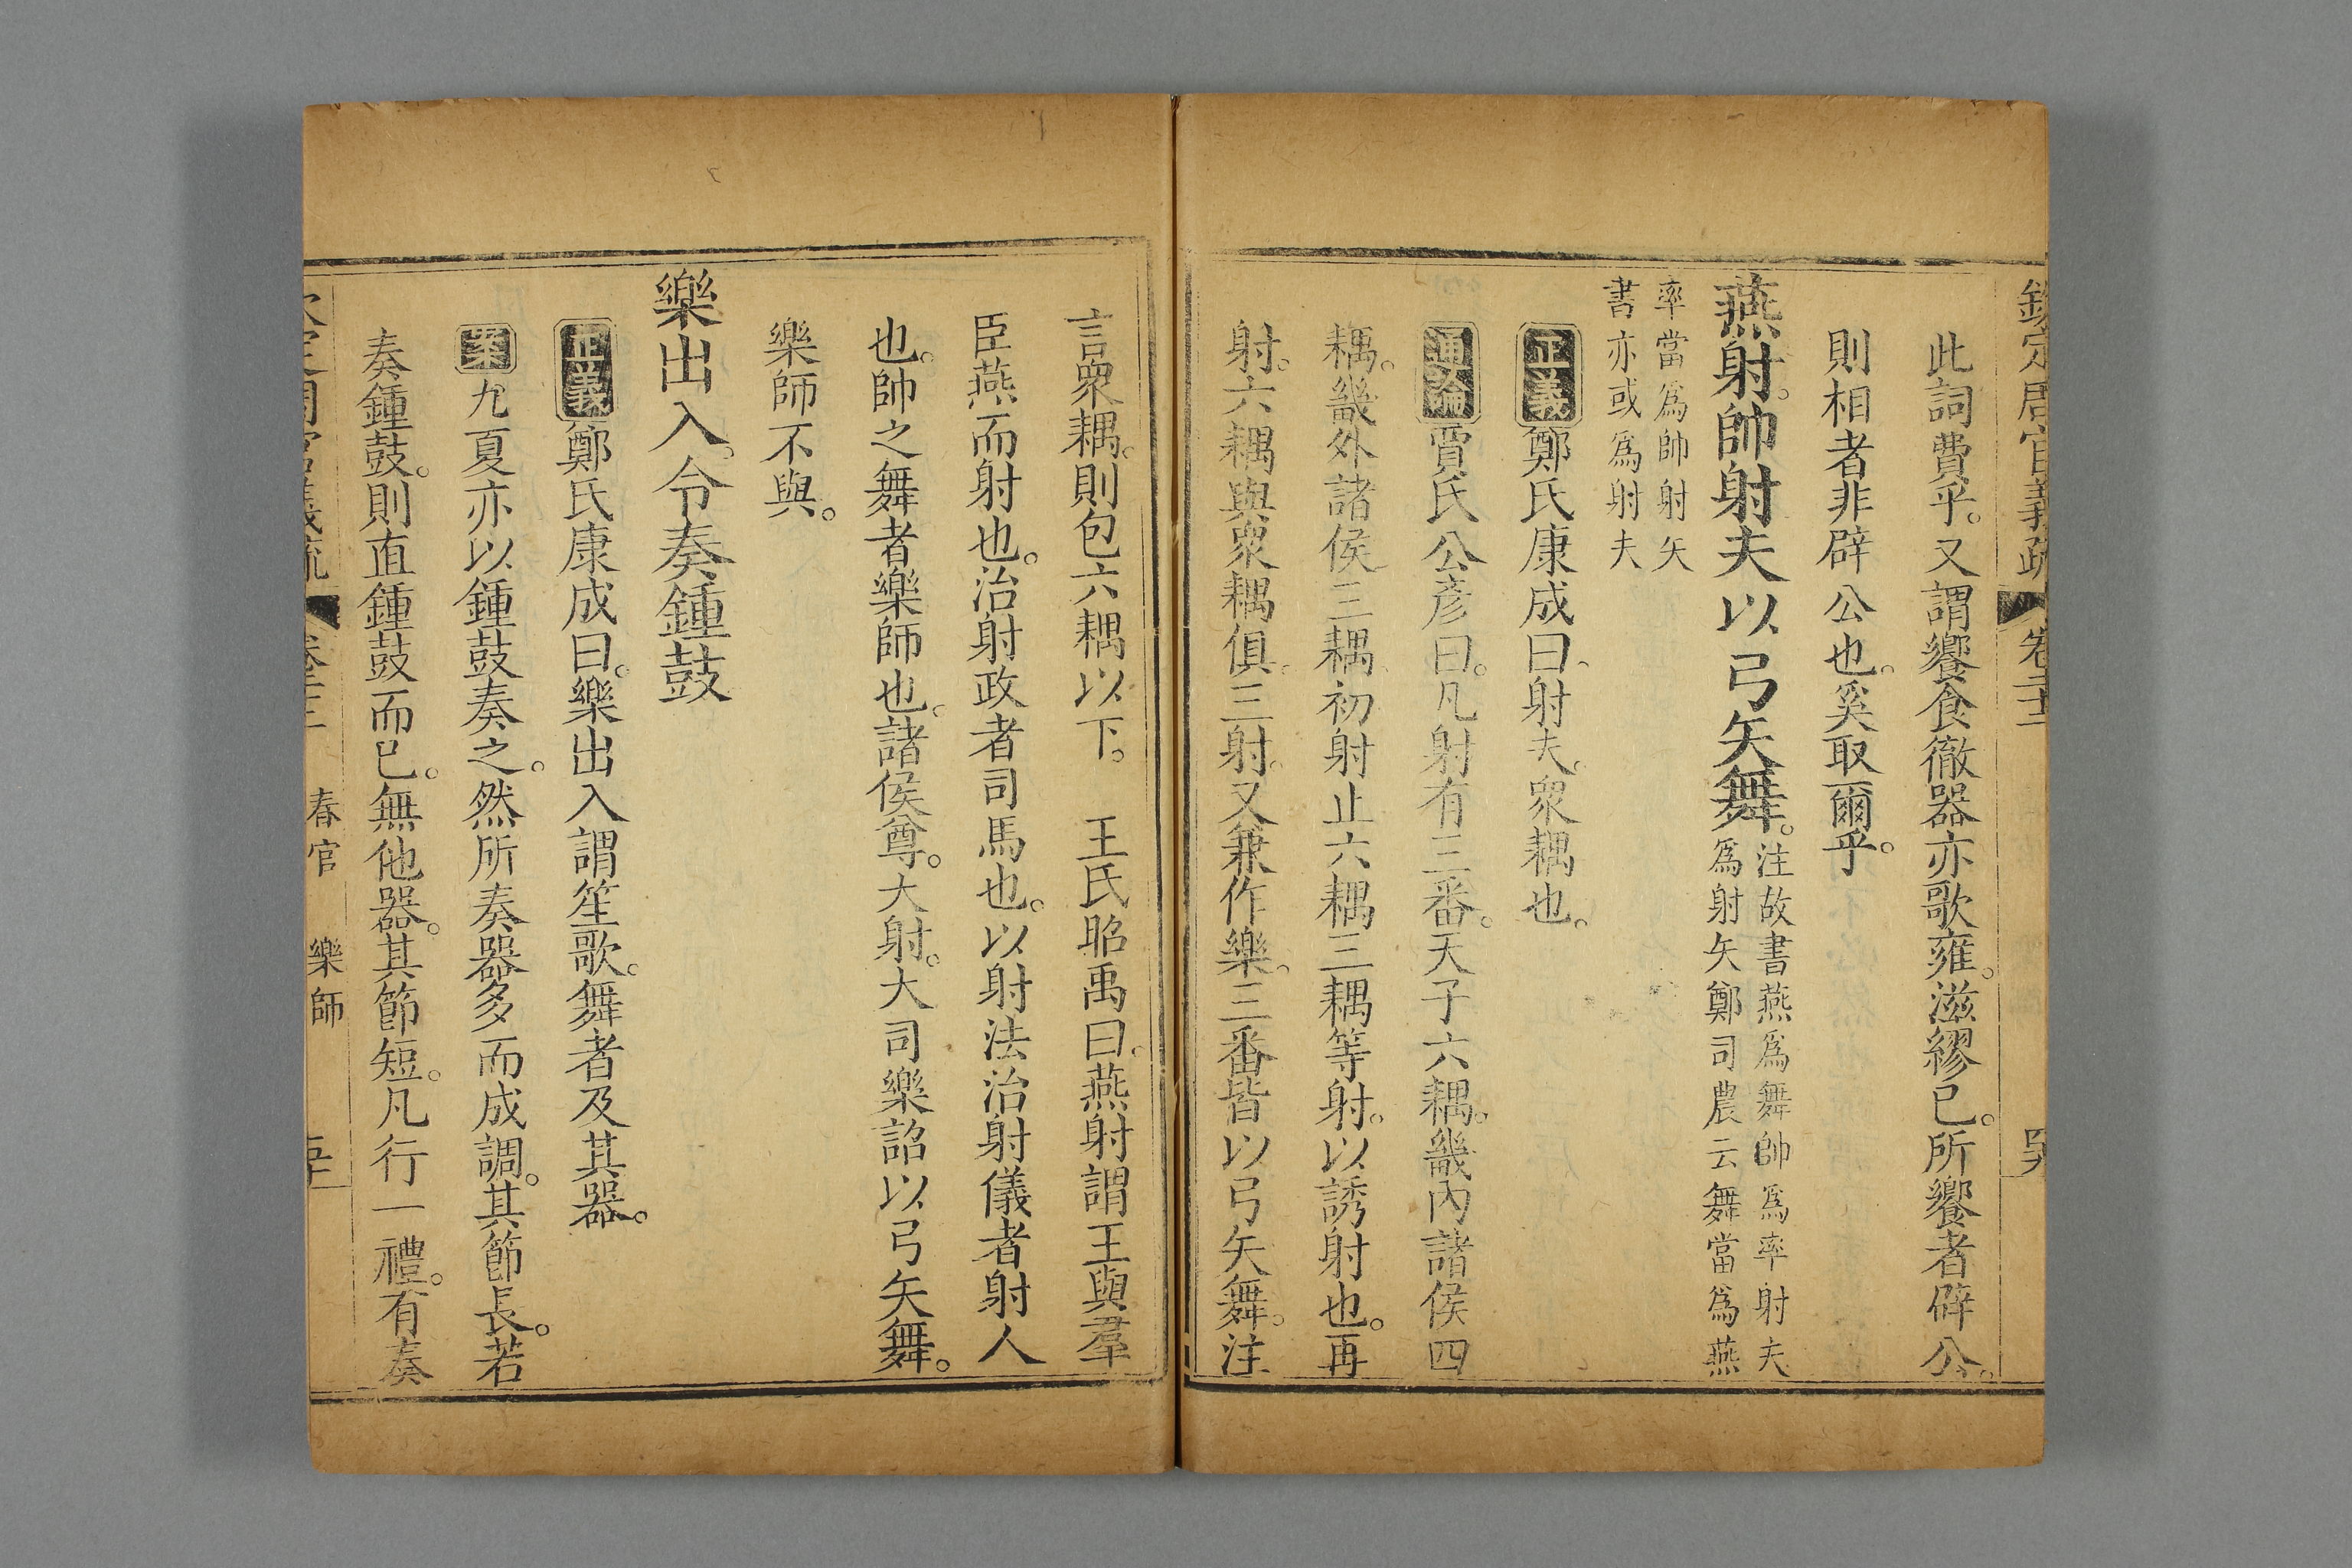 欽定周官義疏 卷二十二
此詞費乎。又謂饗食徹器亦歌雍。滋繆已。所饗者辟公。
則相者非辟公也。奚取爾乎。
燕射。帥射夫以弓矢舞。
注故書燕爲舞帥爲率射夫
爲射矢鄭司農云舞當爲燕
率當爲帥射矢
書亦或爲射夫
正義鄭氏康成曰。射夫。衆耦也。
通論賈氏公彥曰。凡射有三番。天子六耦。畿內諸侯四
耦。畿外諸侯三耦。初射止六耦三耦等射。以誘射也。再
射。六耦與衆耦俱。三射。又兼作樂。三番皆以弓矢舞。注
言衆耦。則包六耦以下。 王氏昭禹曰。燕射謂王與羣
臣燕而射也。治射政者司馬也。以射法治射儀者射人
也。帥之舞者樂師也。諸侯尊。大射。大司樂詔以弓矢舞。
樂師不與。
樂出入。令奏鍾鼓
正義鄭氏康成曰。樂出入謂笙歌。舞者及其器。
案九夏亦以鍾鼓奏之。然所奏器多而成調。其節長。若
奏鍾鼓。則直鍾鼓而已。無他器。其節短。凡行一禮。有奏
春官 樂師